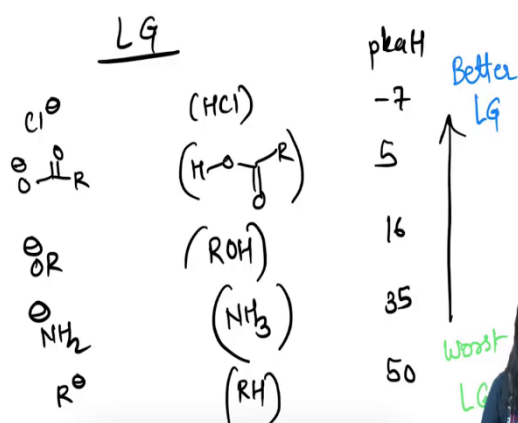 LG
pkaH
Better
LG
Cl⊖ (HCl) -7
⊖O-C(=O)-R (H-O-C(=O)-R) 5
⊖OR (ROH) 16
⊖NH₂ (NH₃) 35
R⊖ (RH) 50
Worst
LG